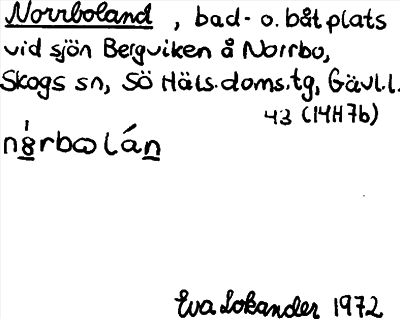 Norrboland, bad- o. båtplats
vid sjön Bergviken å Norrbo,
Skogs sn, Sö Häls. doms. tg, Gävl. l.
43 (14H7b)
Eva Lokander 1972